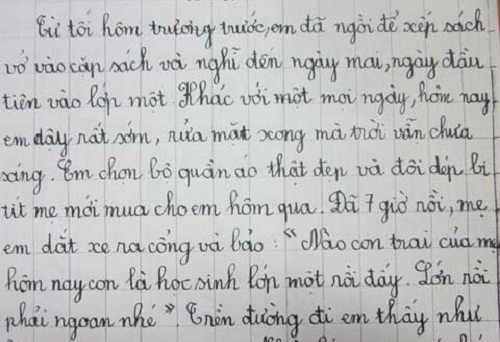 Từ tối hôm trương trước, em đã ngồi để xếp sách
vở vào cặp sách và nghĩ đến ngày mai, ngày đầu
tiên vào lớp một Khác với một mọi ngày, hôm nay
em dậy rất sớm, rửa mặt xong mà trời vẫn chưa
sáng. Em chọn bộ quần áo thật đẹp và đôi dép bi
tít mẹ mới mua cho em hôm qua. Đã 7 giờ rồi, mẹ
em dắt xe ra cổng và bảo : “Nào con trai của mẹ
hôm nay con là học sinh lớp một rồi đấy. Lớn rồi
phải ngoan nhé”. Trên đường đi em thấy như